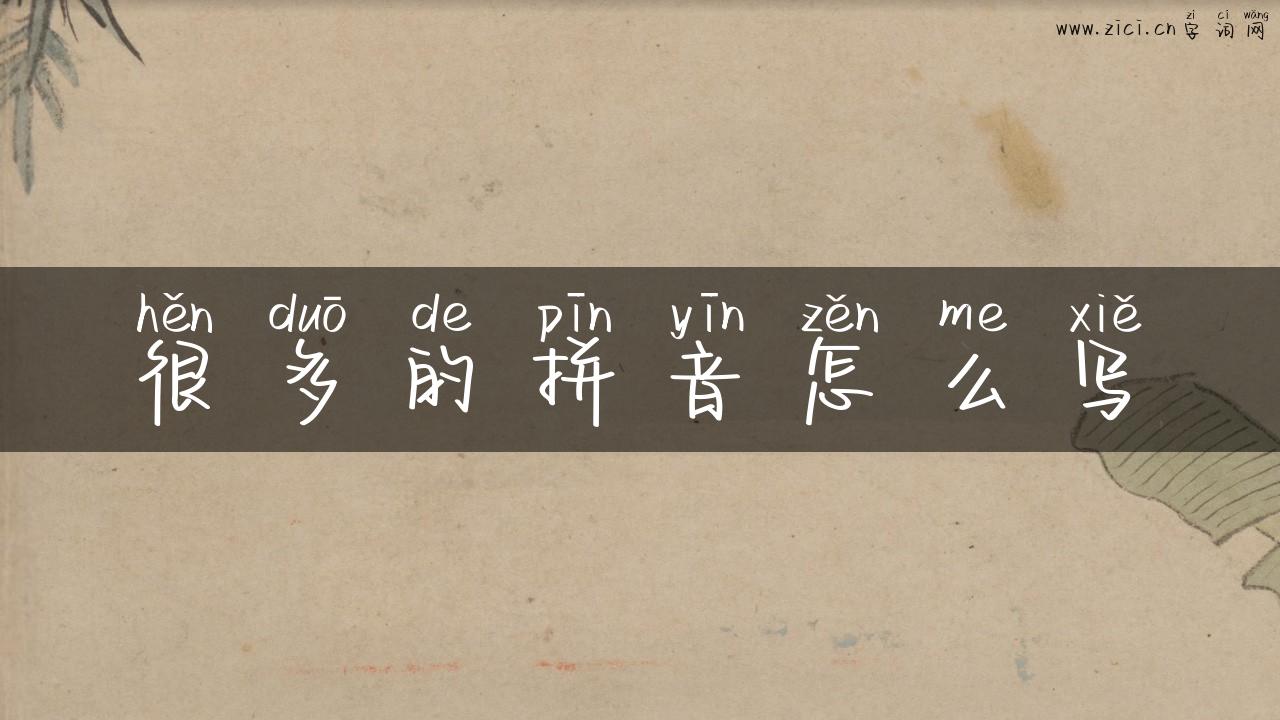 zì cí wǎng
www.zici.cn 字 词 网
hěn duō de pīn yīn zěn me xiě
很 多 的 拼 音 怎 么 写